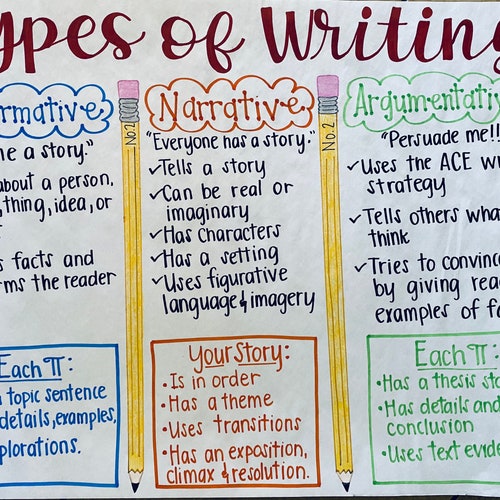 ypes of Writing
rmative
e a story."
about a person,
thing, idea, or
s facts and
rms the reader
Each ¶:
topic sentence
details, examples,
plorations.
No.2
Narrative
"Everyone has a story."
✓Tells a story
✓Can be real or
imaginary
✓Has characters
✓Has a setting
✓Uses figurative
language & imagery
Your Story:
•Is in order
•Has a theme
•Uses transitions
•Has an exposition,
climax & resolution.
No.2
Argumentativ
"Persuade me!!
✓Uses the ACE w
strategy
✓Tells others wha
think
✓Tries to convinc
by giving rea
examples of fa
Each ¶:
•Has a thesis sta
•Has details and
conclusion
•Uses text evide